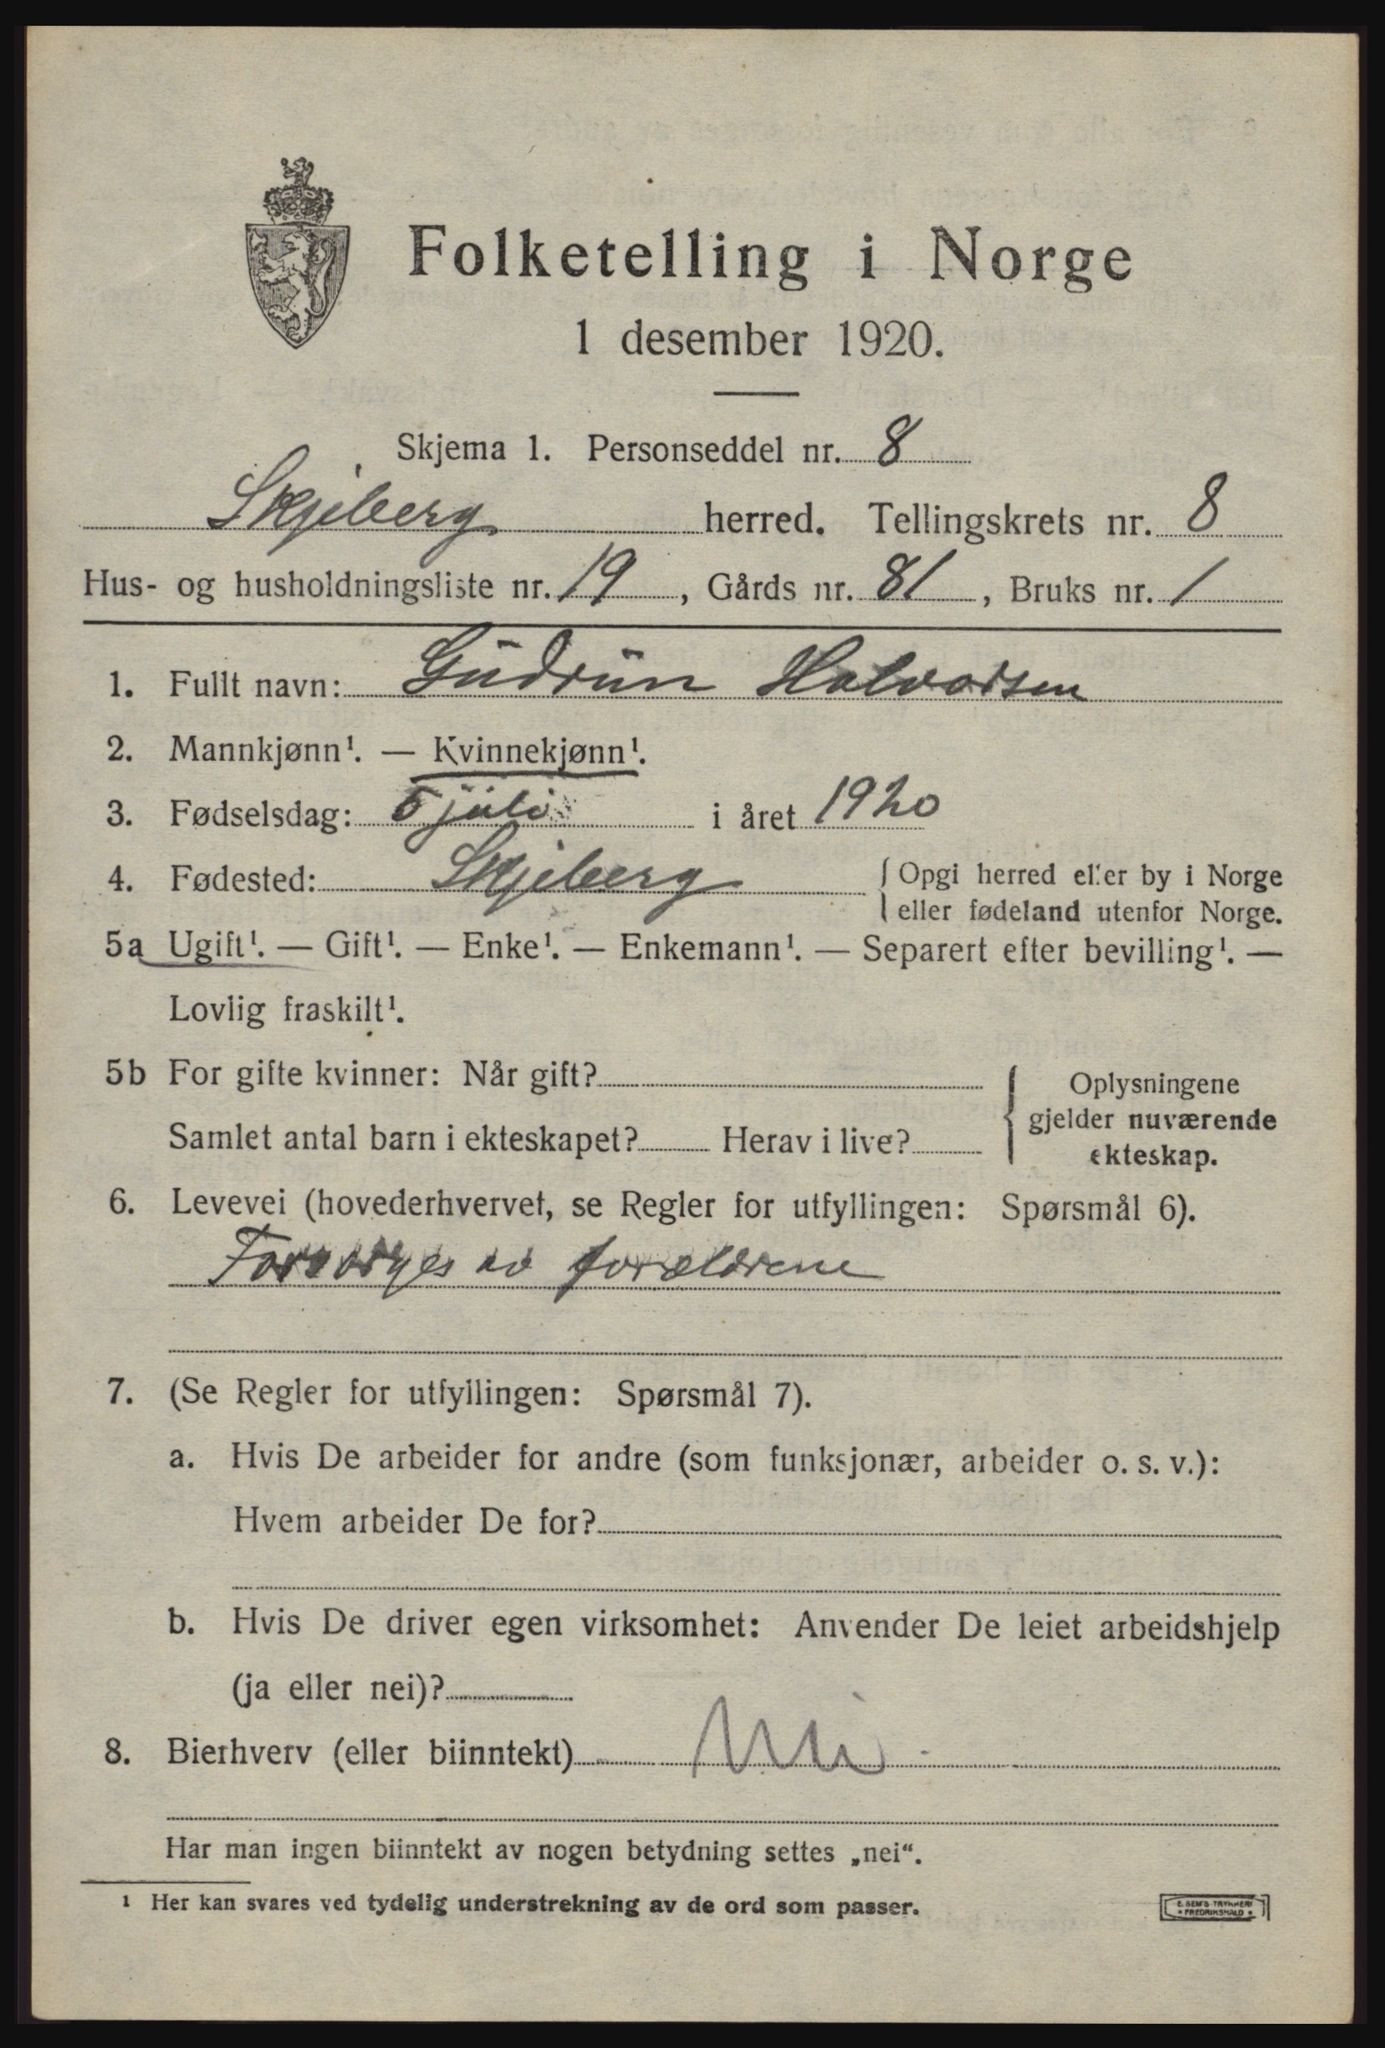 Folketelling i Norge
1 desember 1920.
Skjema 1. Personseddel nr. 8
Skjeberg herred. Tellingskrets nr. 8
Hus- og husholdningsliste nr. 19, Gårds nr. 81, Bruks nr. 1
1. Fullt navn: Gudrun Halvorsen
2. Mannkjønn¹. — Kvinnekjønn¹.
3. Fødselsdag: 5 juli i året 1920
4. Fødested: Skjeberg { Opgi herred eller by i Norge
eller fødeland utenfor Norge.
5a Ugift¹. — Gift¹. — Enke¹. — Enkemann¹. — Separert efter bevilling¹. —
Lovlig fraskilt¹.
5b For gifte kvinner: Når gift?
Samlet antal barn i ekteskapet? Herav i live?
{ Oplysningene
gjelder nuværende
ekteskap.
6. Levevei (hovederhvervet, se Regler for utfyllingen: Spørsmål 6).
Forsorges av forældrene
7. (Se Regler for utfyllingen: Spørsmål 7).
a. Hvis De arbeider for andre (som funksjonær, arbeider o. s. v.):
Hvem arbeider De for?
b. Hvis De driver egen virksomhet: Anvender De leiet arbeidshjelp
(ja eller nei)?
8. Bierhverv (eller biinntekt) Nei
Har man ingen biinntekt av nogen betydning settes „nei“.
¹ Her kan svares ved tydelig understrekning av de ord som passer.
E. SEM'S TRYKKERI
* FREDRIKSHALD *